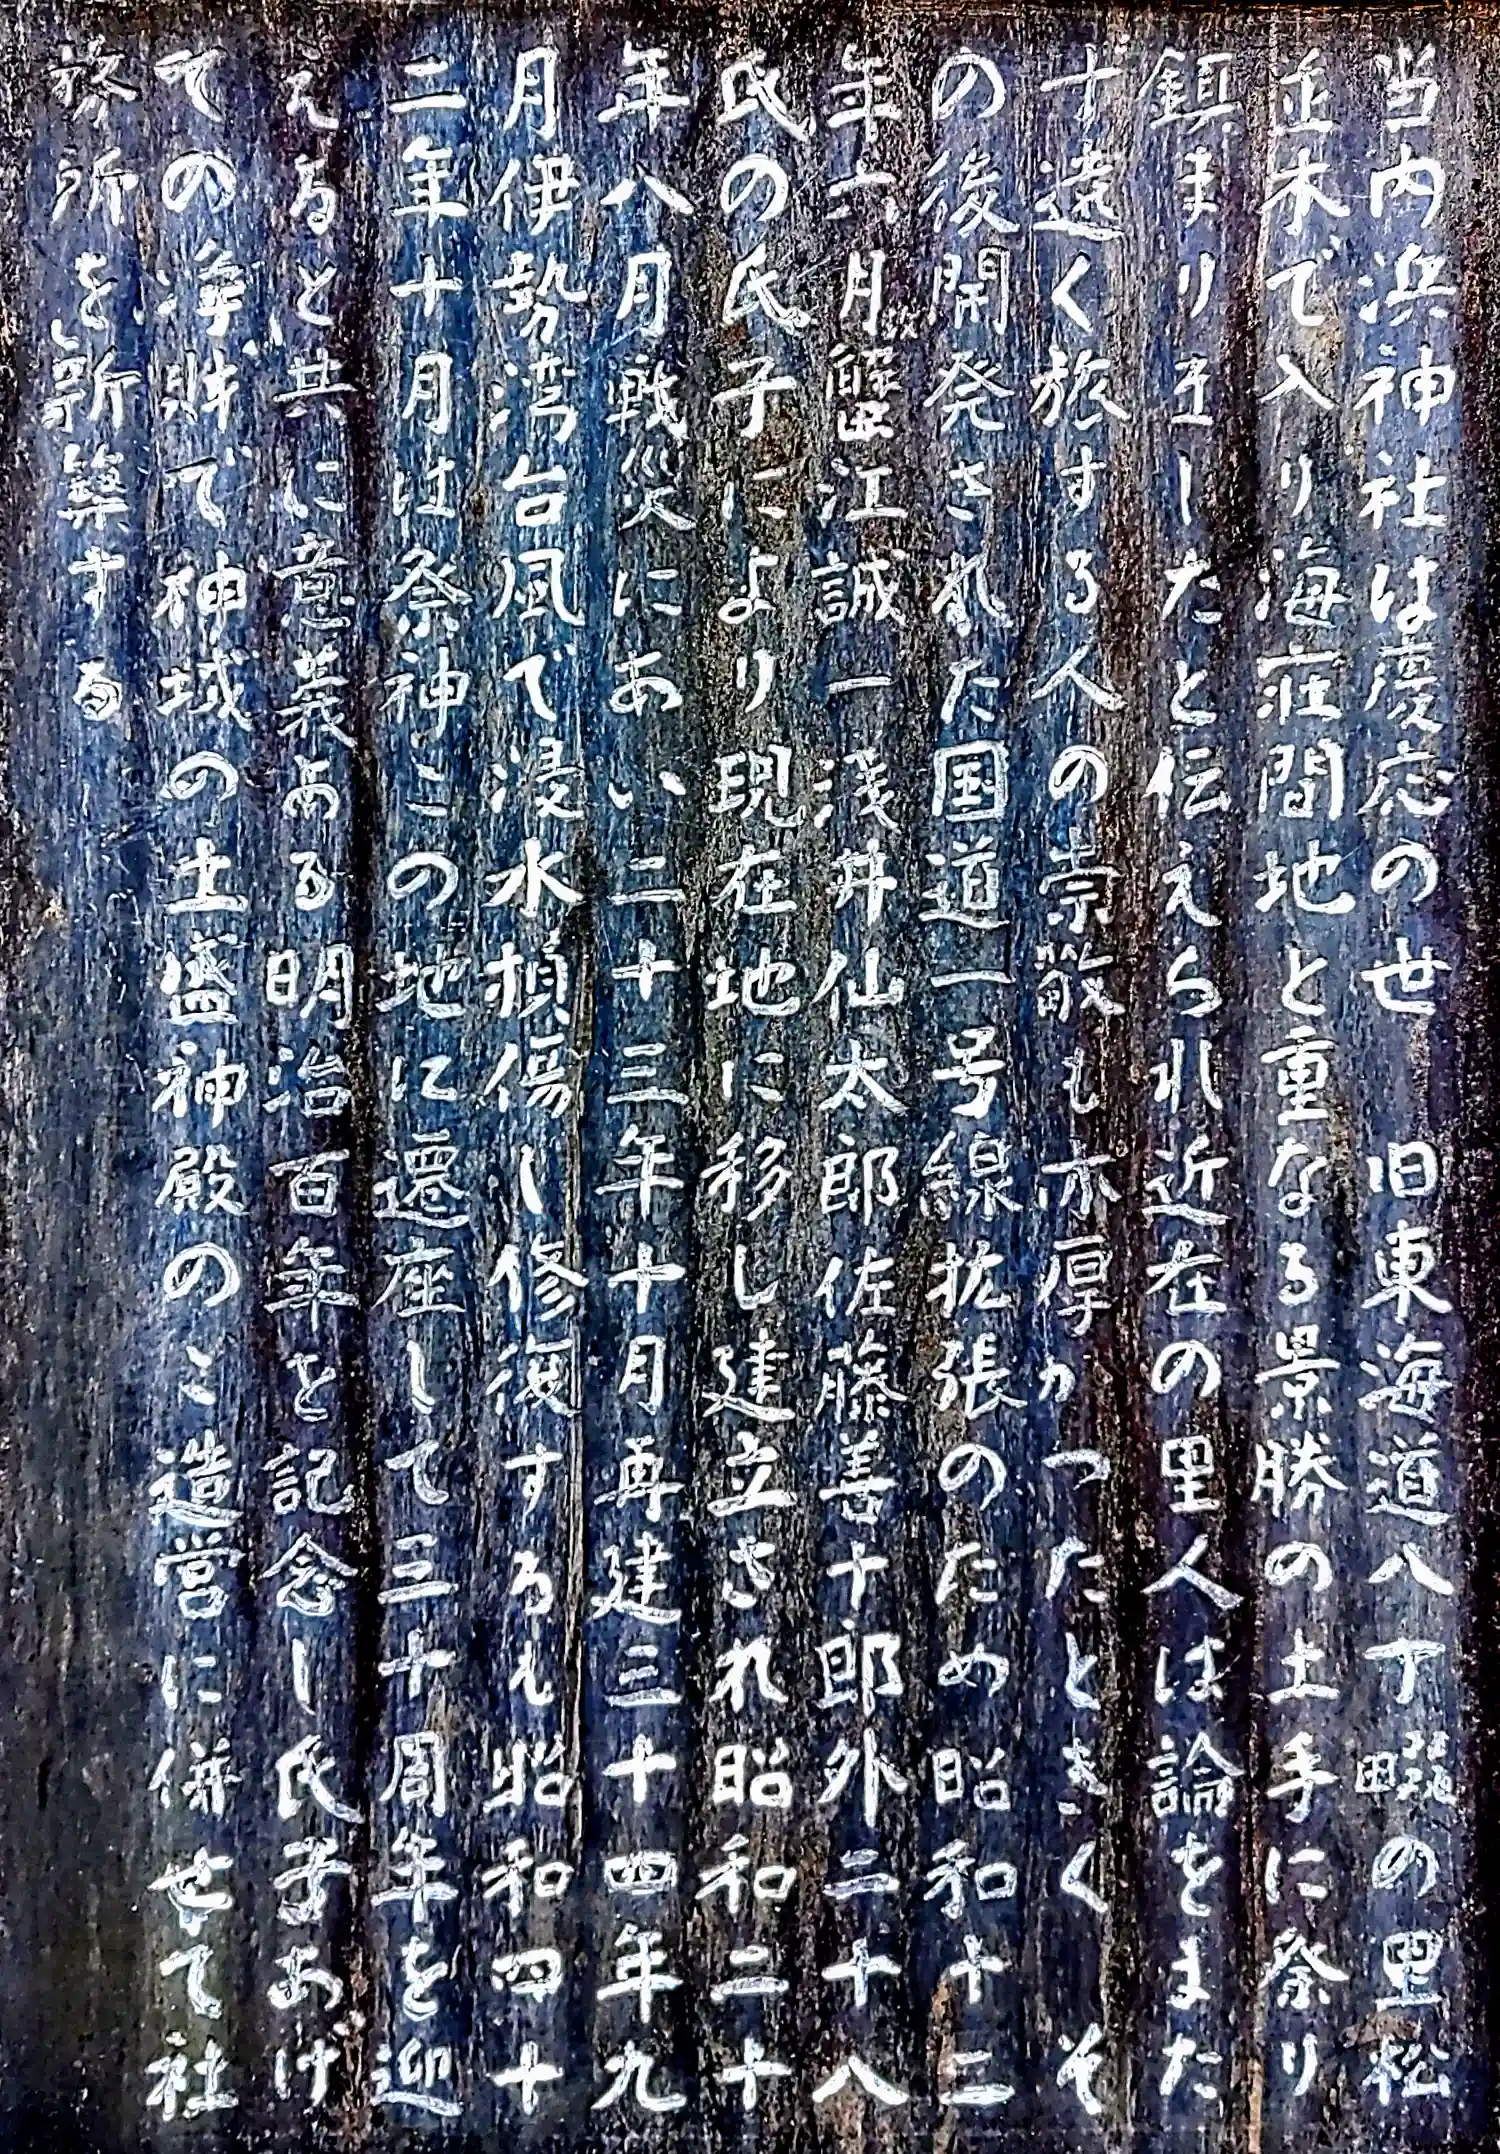 当内浜神社は慶応の世　旧東海道八丁畷の里松
並木で入り海荘間地と重なる景勝の土手に祭り
鎮まり至したと伝えられ近在の里人は論をまた
す遠く旅する人の崇敬も亦厚かつたときく　そ
の後開発された国道一号線拡張のため昭和十二
年六月蟹江誠一浅井仙太郎佐藤善十郎外二十八
氏の氏子により現在地に移し建立され昭和二十
年八月戦災にあい二十三年十月再建三十四年九
月伊勢湾台風で浸水損傷し修復するも昭和四十
二年十月は祭神この地に遷座して三十周年を迎
えると共に意義ある明治百年を記念し氏子あげ
ての浄財で神域の土盛神殿のご造営に併せて社
務所を新築する